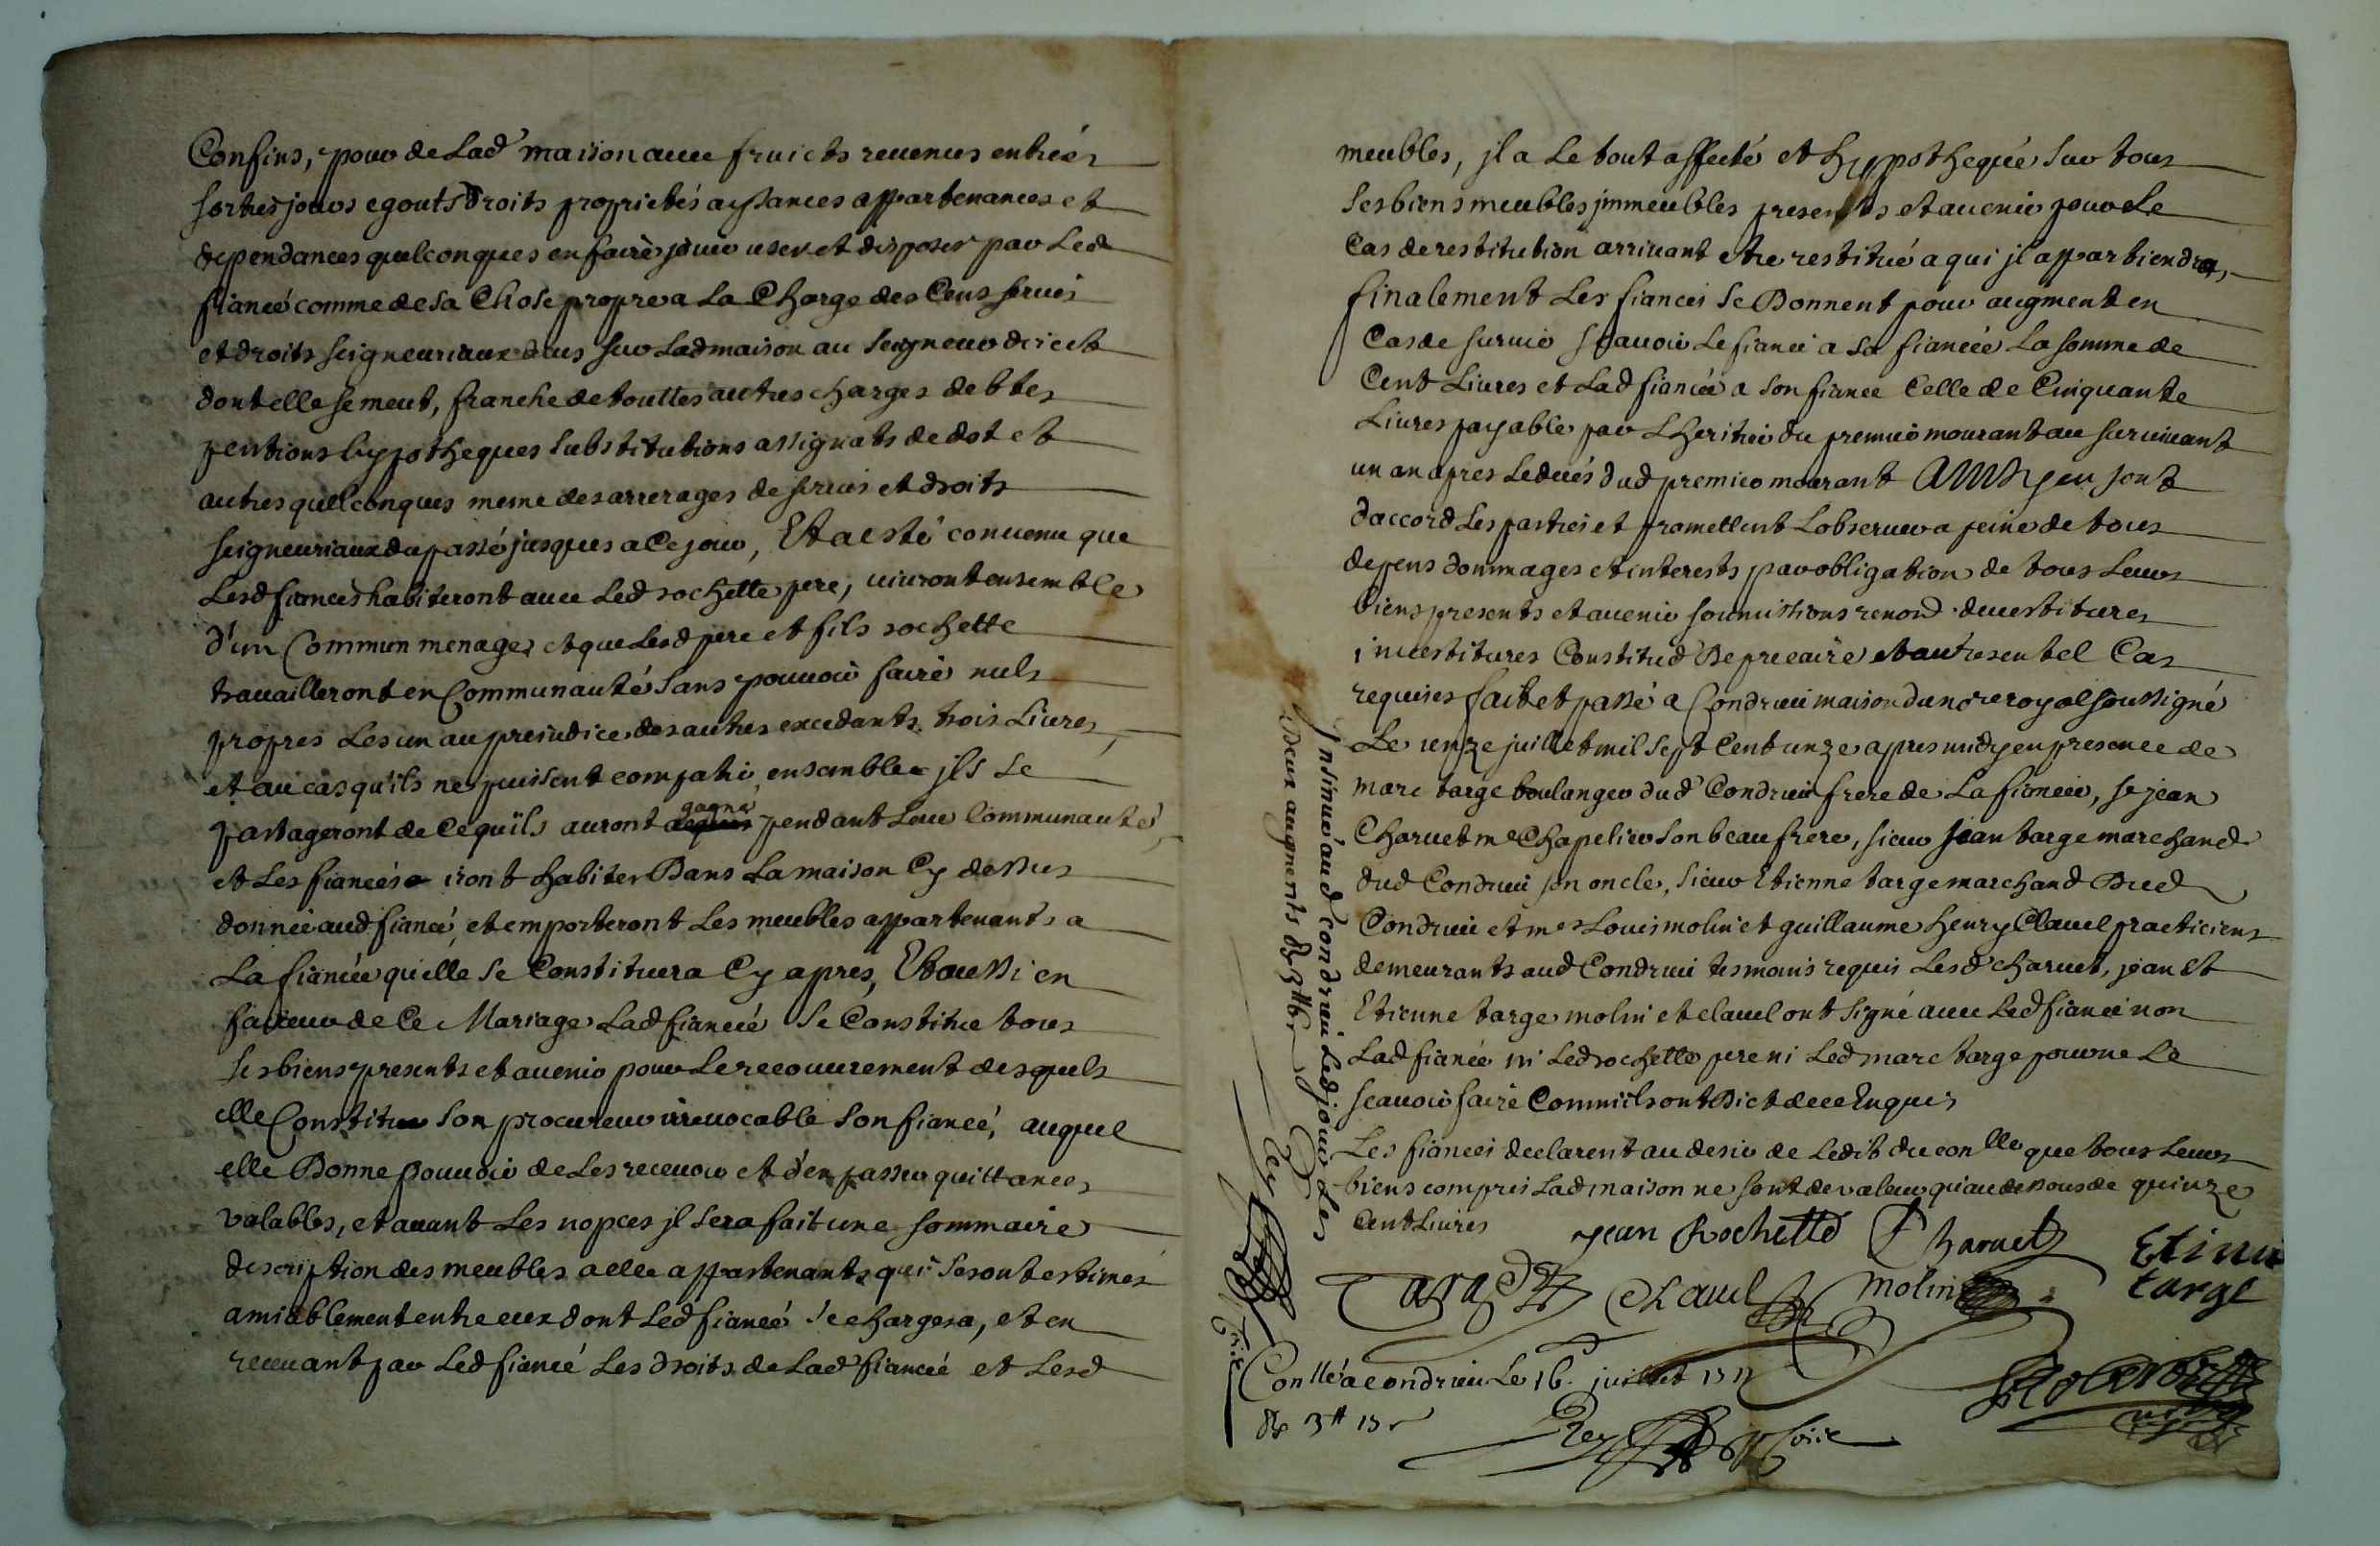 Confins, pour de Lad maison avec fruicts revenus entrées
sorties jours egouts droits proprietés aysances appartenances et
dependances quelconques en faire jouir user et disposer par Led
fiancé comme de sa Chose propre a La Charge des Cens servis
et droits seigneuriaux deus sur Lad maison au seigneur direct
dont elle se meut, franche de touttes autres charges debtes
pentions hypotheques substitutions assignats de dot et
autres quelconques meme des arrerages de servis et droits
seigneuriaux du passé jusques a Ce jour, Et a esté convenu que
Lesd fiancés habiteront avec Led rochette pere, vivront ensemble
d'un Commun menage, et que Lesd pere et fils rochette
travailleront en Communauté sans pouvoir faire nuls
propres Les un au preiudice des autres excedants trois Livres,
et au cas qu'ils ne puissent compatir ensemble jls se
partageront de Ce qu'ils auront gagné pendant Leur Communauté,
et Les fiancés iront habiter Dans La maison Cy dessus
donnée aud fiancé, et emporteront Les meubles appartenants a
La fiancée qu'elle se Constituera Cy apres, Et aussi en
faveur de Ce Mariage Lad fiancée se Constitue tous
ses biens presents et avenir pour Le recouvrement desquels
elle Constitue son procureur irrevocable son fiancé, auquel
elle Donne pouvoir de Les recevoir et d'en passer quittances
valables, et avant Les nopces jl sera fait une sommaire
description des meubles a elle appartenants qui seront estimés
amiablement entre eux dont Led fiancé se chargera, et en
recevant par Led fiancé Les droits de Lad fiancée et Lesd
meubles, jl a Le tout affecté et hyppothequé sur tous
ses biens meubles jmmeubles presents et avenir pour Le
Cas de restitution arrivant etre restitué a qui jl appartiendra,
finalement Les fiancés se Donnent pour augment en
Cas de survie sçavoir Le fiancé a sa fiancée La somme de
Cent Livres et Lad fiancée a son fiancé Celle de Cinquante
Livres payable par L'heritier du premier mourant au survivant
un an apres Le decés dud premier mourant Ainsy en sont
d'accord Les parties et promettent L'observer a peine de tous
depens dommages et interests par obligation de tous Leurs
biens presents et avenir soumissions renond devestitures
investitures Constitud De precaire et autres en tel Cas
requises fait et passé a Condrieu maison du nore royal soussigné
Le unze juillet mil sept Cent unze apres midy en presence de
marc targe boulanger dud Condrieu frere de La fiancée, sr jean
Charvet me Chapelier son beau frere, sieur jean targe marchand
dud Condrieu son oncle, sieur Etienne targe marchand Dud
Condrieu et mes Louis molin et guillaume henry Clavel practiciens
demeurants aud Condrieu tesmoins requis Lesd charvet, jean et
Etienne targe molin et clavel ont signé avec Led fiancé non
Lad fiancée ni Led rochette pere ni Led marc targe pour ne Le
scavoir faire Comm'ils ont Dict de ce Enquis
Les fiancés declarent au desir de L'edit du conlle que tous Leurs
biens compris Lad maison ne sont de valeur qu'au dessous de quinze
Cent Livres
jean Rochette Charvet Etinne targe
Targe Clavel molin
Conllé a condrieu Le 16 juillet 1711
R 3# 13s
Insinué aud Condrieu Led jour Les
Deux augments